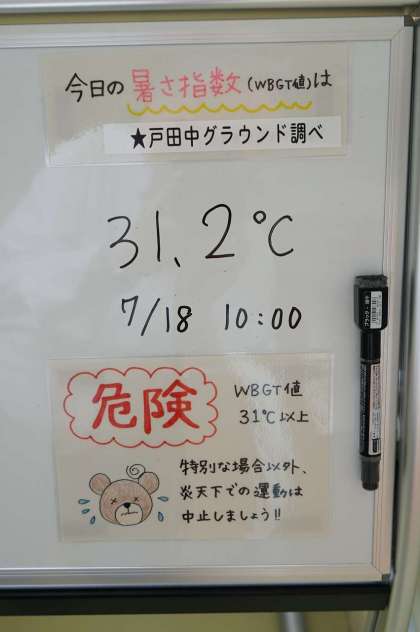 今日の暑さ指数(WBGT値)は
★戸田中グラウンド調べ
31.2℃
7/18 10:00
危険
WBGT値
31℃以上
特別な場合以外、
炎天下での運動は
中止しましょう!!